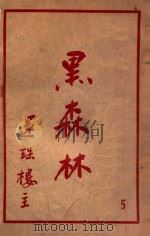 黑森林
還珠樓主
5